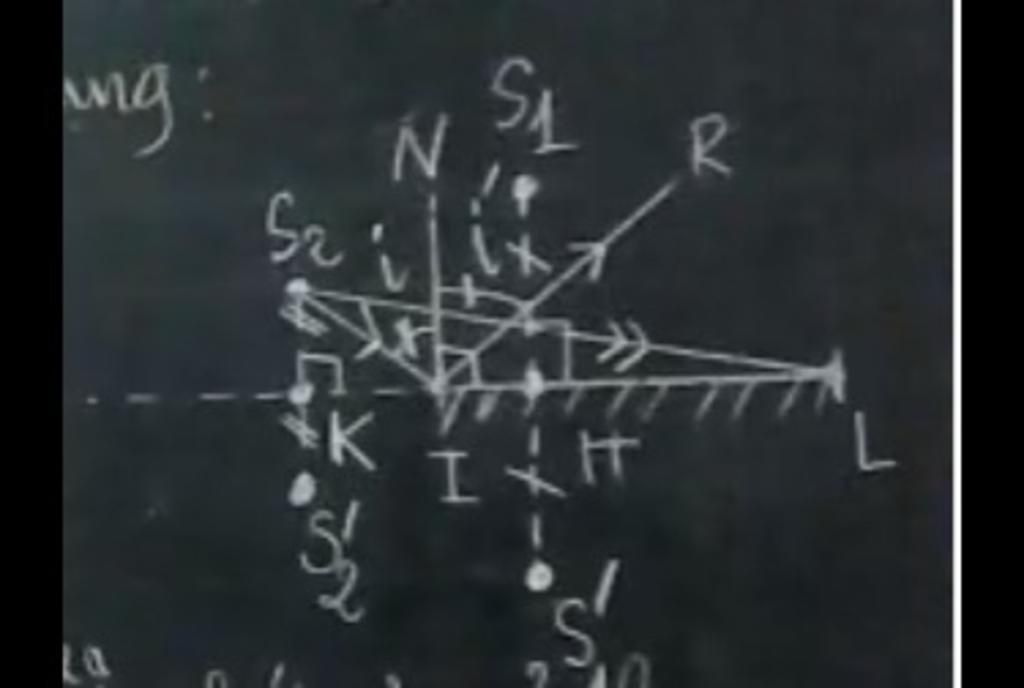 ung:
S1
N
R
S2
i
i'
K
I
H
L
S'2
S'